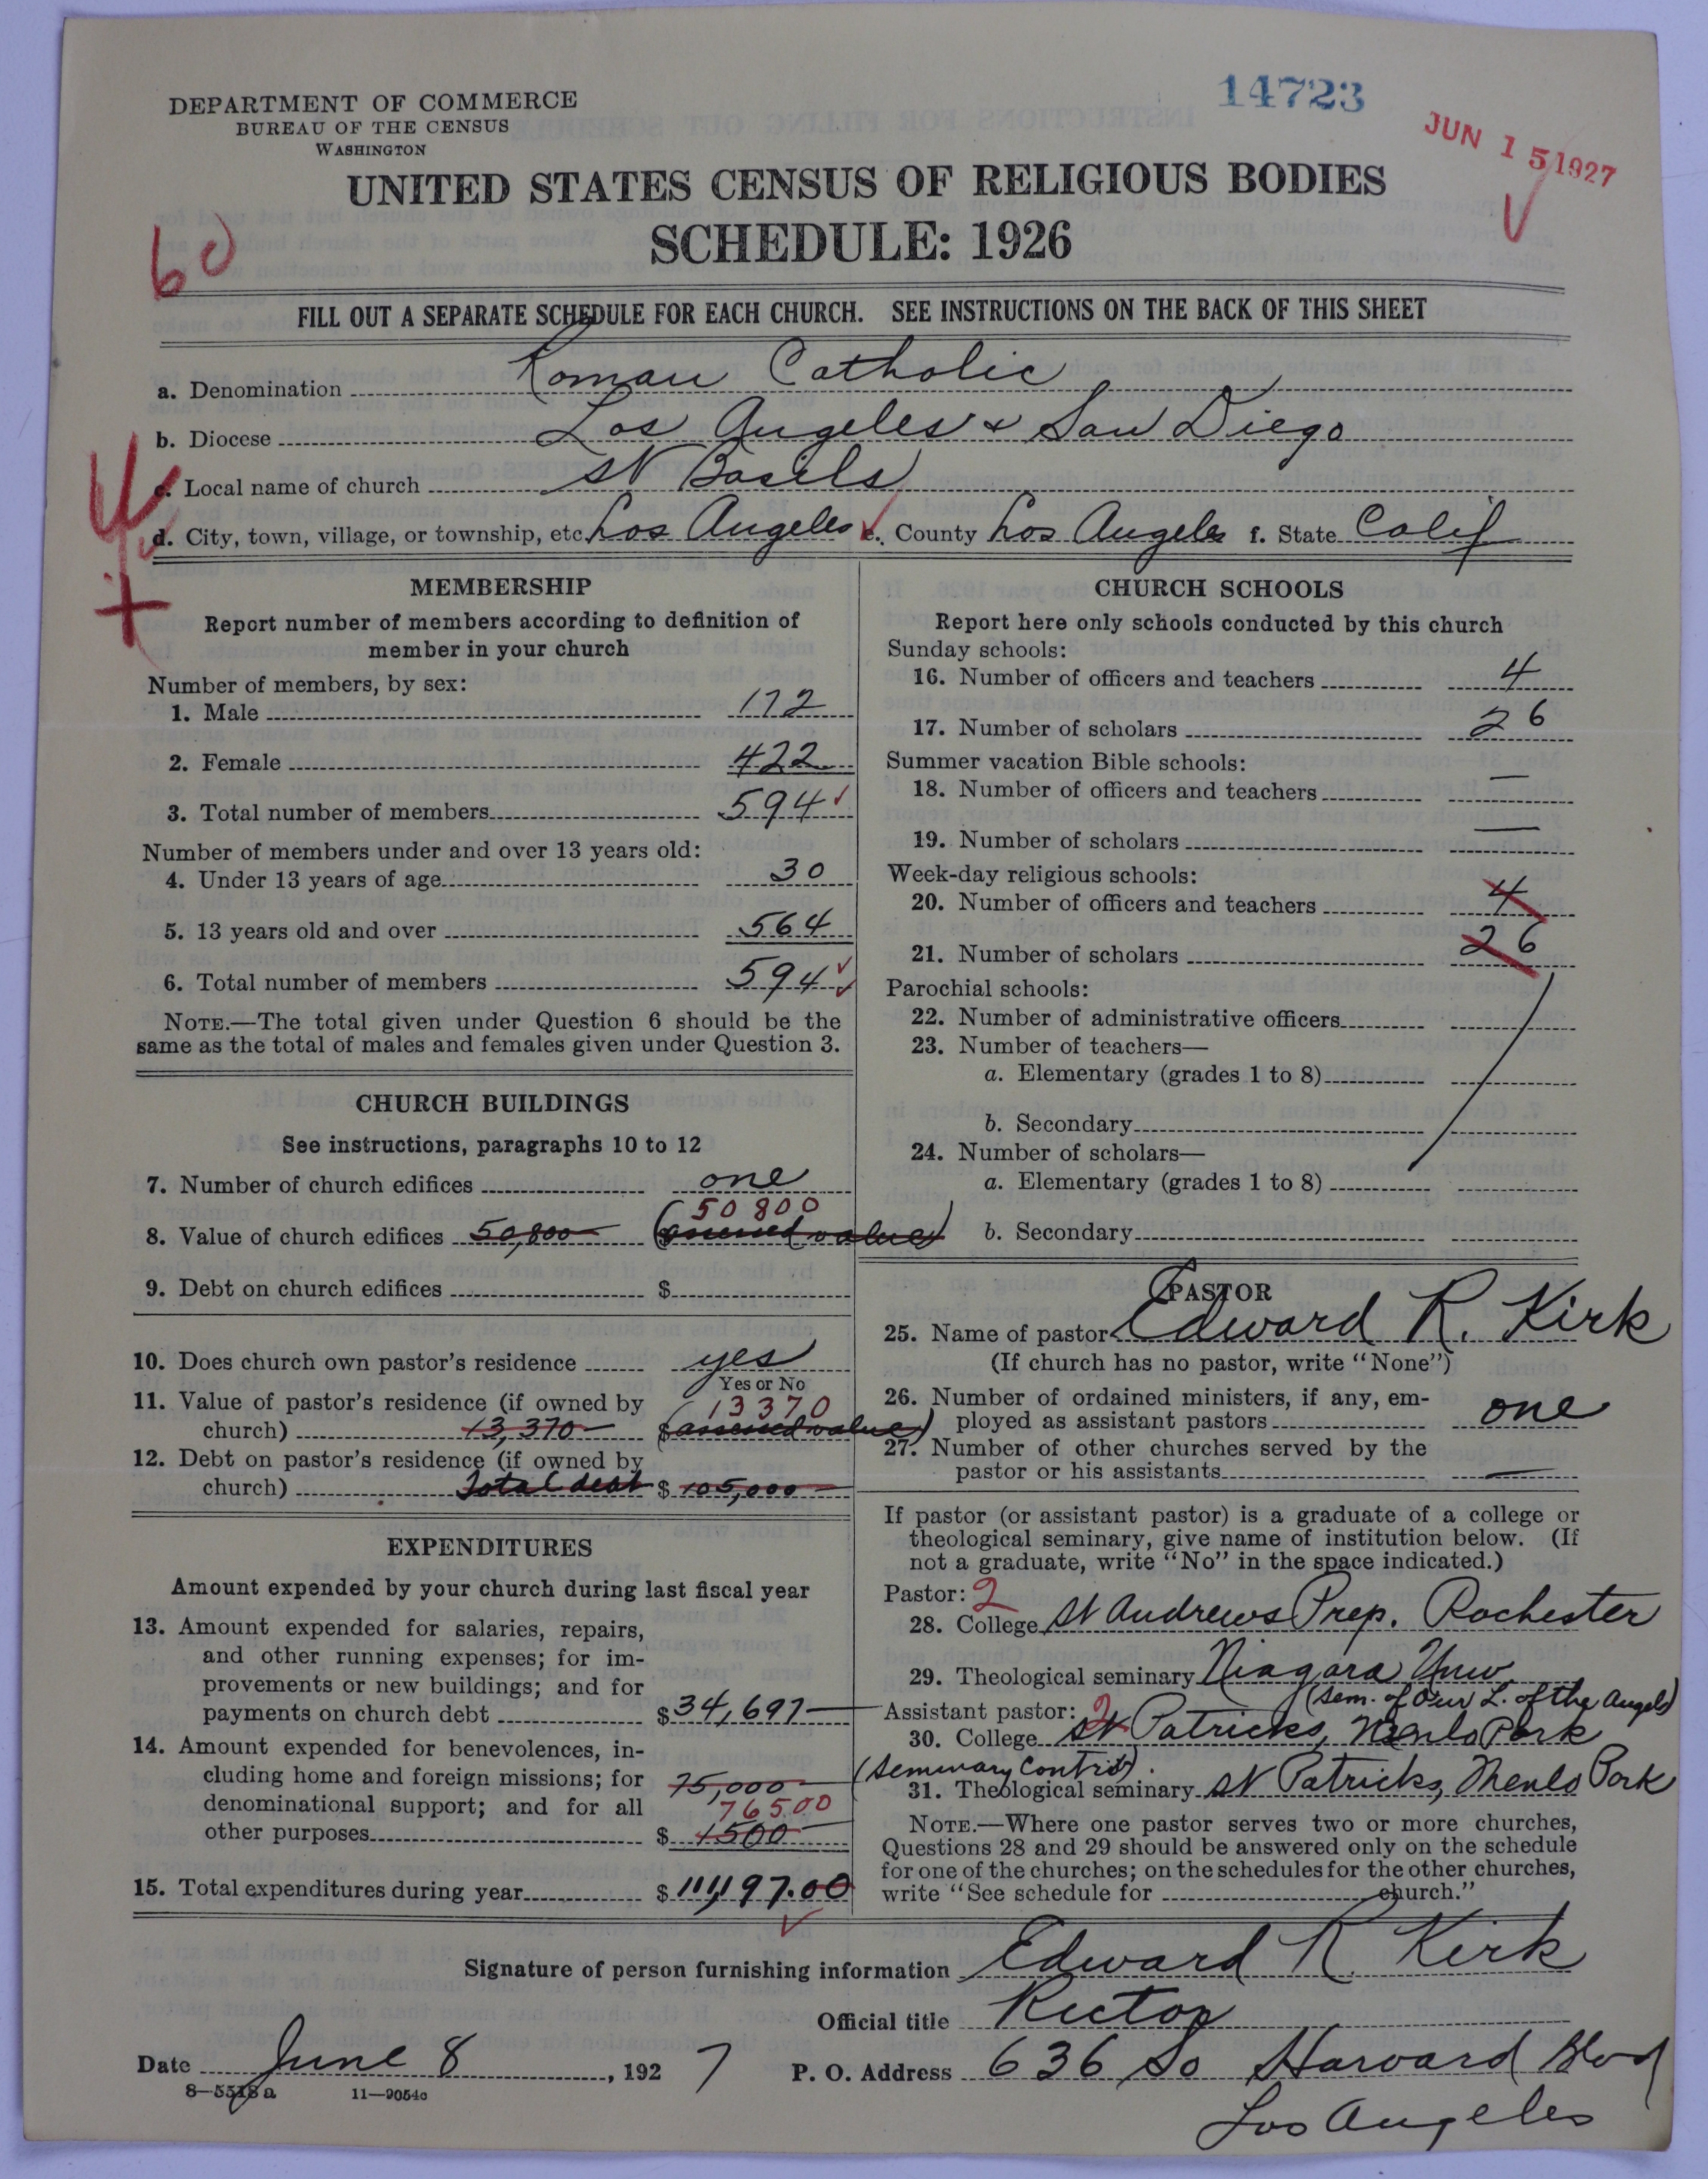 14723
JUN 15 1927
DEPARTMENT OF COMMERCE
BUREAU OF THE CENSUS
WASHINGTON
UNITED STATES CENSUS OF RELIGIOUS BODIES
SCHEDULE: 1926
60
FILL OUT A SEPARATE SCHEDULE FOR EACH CHURCH. SEE INSTRUCTIONS ON THE BACK OF THIS SHEET
a. Denomination Roman Catholic
b. Diocese Los Angeles & San Diego
c. Local name of church St Basils
d. City, town, village, or township, etc. Los Angeles e. County Los Angeles f. State Calif
MEMBERSHIP
Report number of members according to definition of
member in your church
Number of members, by sex:
1. Male 172
2. Female 422
3. Total number of members 594
Number of members under and over 13 years old:
4. Under 13 years of age 30
5. 13 years old and over 564
6. Total number of members 594
NOTE.—The total given under Question 6 should be the
same as the total of males and females given under Question 3.
CHURCH BUILDINGS
See instructions, paragraphs 10 to 12
7. Number of church edifices one
50800
8. Value of church edifices 50,800 $(assessed value)
9. Debt on church edifices $
10. Does church own pastor's residence yes
Yes or No
11. Value of pastor's residence (if owned by 13370
church) 13,370 $(assessed value)
12. Debt on pastor's residence (if owned by
church) Total debt $ 105,000
EXPENDITURES
Amount expended by your church during last fiscal year
13. Amount expended for salaries, repairs,
and other running expenses; for im-
provements or new buildings; and for
payments on church debt $34,697
14. Amount expended for benevolences, in-
cluding home and foreign missions; for 75,000 (Seminary Contrib).
denominational support; and for all 76500
other purposes $ 1500
15. Total expenditures during year $ 111,197.00
CHURCH SCHOOLS
Report here only schools conducted by this church
Sunday schools:
16. Number of officers and teachers 4
17. Number of scholars 26
Summer vacation Bible schools:
18. Number of officers and teachers —
19. Number of scholars —
Week-day religious schools:
20. Number of officers and teachers 4
21. Number of scholars 26
Parochial schools:
22. Number of administrative officers
23. Number of teachers—
a. Elementary (grades 1 to 8)
b. Secondary
24. Number of scholars—
a. Elementary (grades 1 to 8)
b. Secondary
PASTOR
25. Name of pastor Edward R. Kirk
(If church has no pastor, write "None")
26. Number of ordained ministers, if any, em-
ployed as assistant pastors one
27. Number of other churches served by the
pastor or his assistants —
If pastor (or assistant pastor) is a graduate of a college or
theological seminary, give name of institution below. (If
not a graduate, write "No" in the space indicated.)
Pastor: 2
28. College St Andrews Prep. Rochester
29. Theological seminary Niagara Univ.
(Sem. of Our L. of the Angels)
Assistant pastor: 2
30. College St Patricks, Menlo Park
31. Theological seminary St Patricks, Menlo Park
NOTE.—Where one pastor serves two or more churches,
Questions 28 and 29 should be answered only on the schedule
for one of the churches; on the schedules for the other churches,
write "See schedule for church."
Signature of person furnishing information Edward R. Kirk
Official title Rector
Date June 8, 1927 P. O. Address 636 So Harvard Blvd
Los Angeles
8—5518a 11—9054c